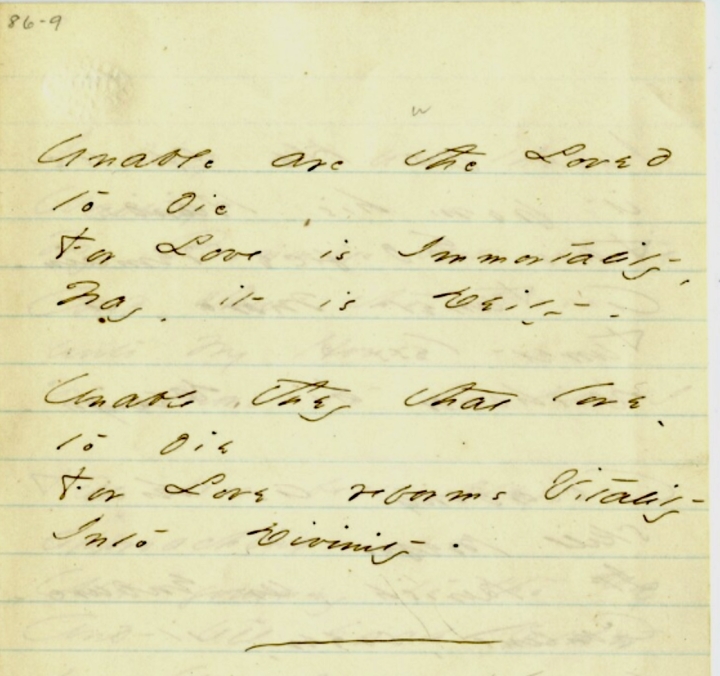 86-9
w
Unable are the Loved
to die
For Love is Immortality,
Nay, it is Deity -
Unable they that love,
to die
For Love reforms Vitality
Into Divinity.